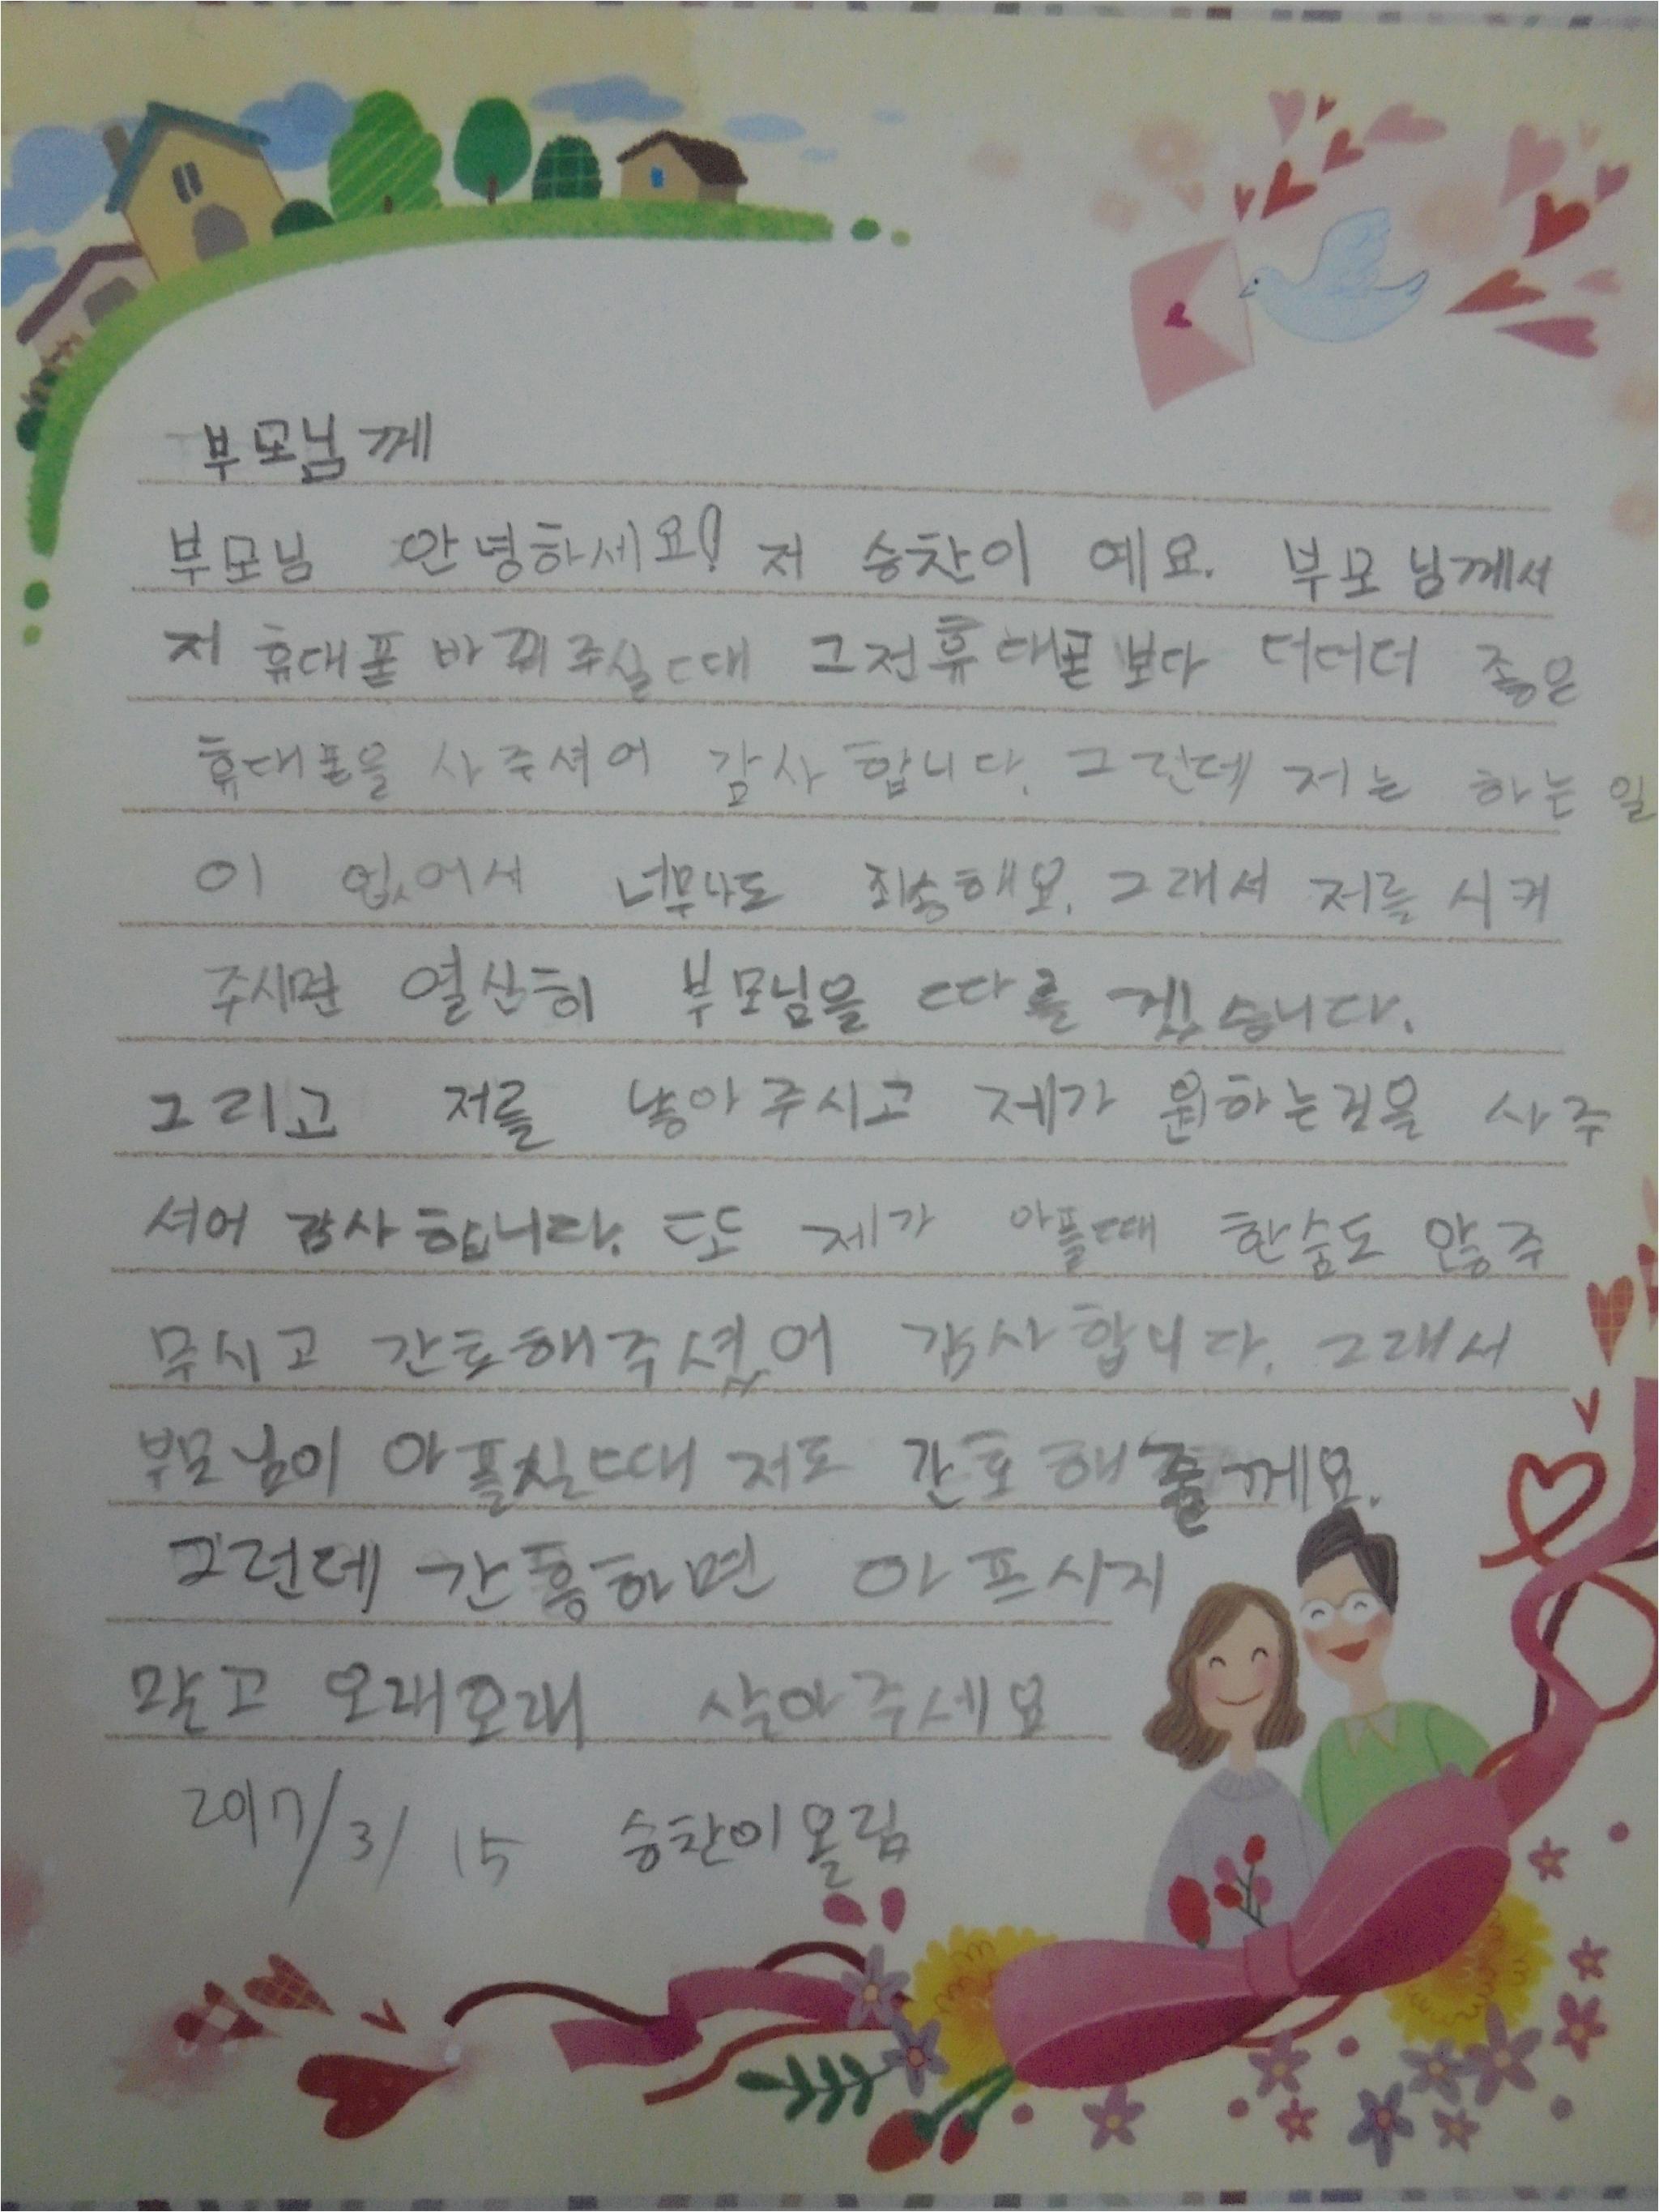 부모님께
부모님 안녕하세요! 저 승찬이 예요. 부모님께서
저 휴대폰 바꿔주실때 그전휴대폰보다 더더더 좋은
휴대폰을 사주셔어 감사합니다. 그런데 저는 하는 일
이 없어서 너무나도 죄송해요. 그래서 저를 시켜
주시면 열심히 부모님을 따를 겠습니다.
그리고 저를 낳아주시고 제가 원하는것을 사주
셔어 감사합니다. 또 제가 아플때 한숨도 않주
무시고 간호해주셨어 감사합니다. 그래서
부모님이 아플실때 저도 간호해줄께요.
그런데 간흥하면 아프시지
말고 오래오래 살아주세요
2017/3/15 승찬이올림